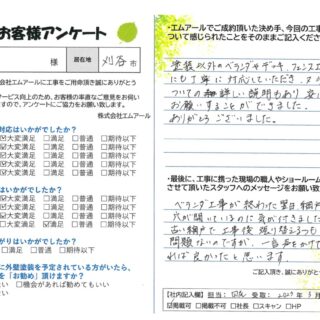 お客様アンケート
様 居在地 刈谷市
株式会社エムアールに工事をご用命頂き誠にありがとう
サービス向上のため、お客様の率直なご意見をお伺い
ますので、アンケートにご協力をお願い致します。
株式会社エムアール
対応はいかがでしたか?
大変満足 □満足 □普通 □期待以下
大変満足 □満足 □普通 □期待以下
大変満足 □満足 □普通 □期待以下
はいかがでしたか?
大変満足 □満足 □普通 □期待以下
大変満足 □満足 □普通 □期待以下
大変満足 □満足 □普通 □期待以下
がりはいかがでしたか?
□満足 □普通 □期待以下
に外壁塗装を予定されている方がいたら、
を「お勧め」頂けますか?
い □機会があれば勧めてもいい
ない
・エムアールでご成約頂いた決め手、今回の工事
ついて感じられたことをそのままご記入ください
塗装以外のベランダやデッキ、フェンス
にも丁寧に対応していただき、
ついての詳しい説明もあり 安
お願いすることができました。
ありがとうございました。
・最後に、工事に携った現場の職人やショールーム
させて頂いたスタッフへのメッセージをお願い致
ベランダ工事が終わった翌日、網戸
穴が開いているのに気が付きました
古い網戸で 工事後 張り替えるつも
問題ないのですが、一言声をかけて
れば良かったと思います。
ご記入頂き、誠にありがとう
【社内記入欄】担当: 受取:
☑掲載可 □掲載不可 □社長 □スキャン □HP